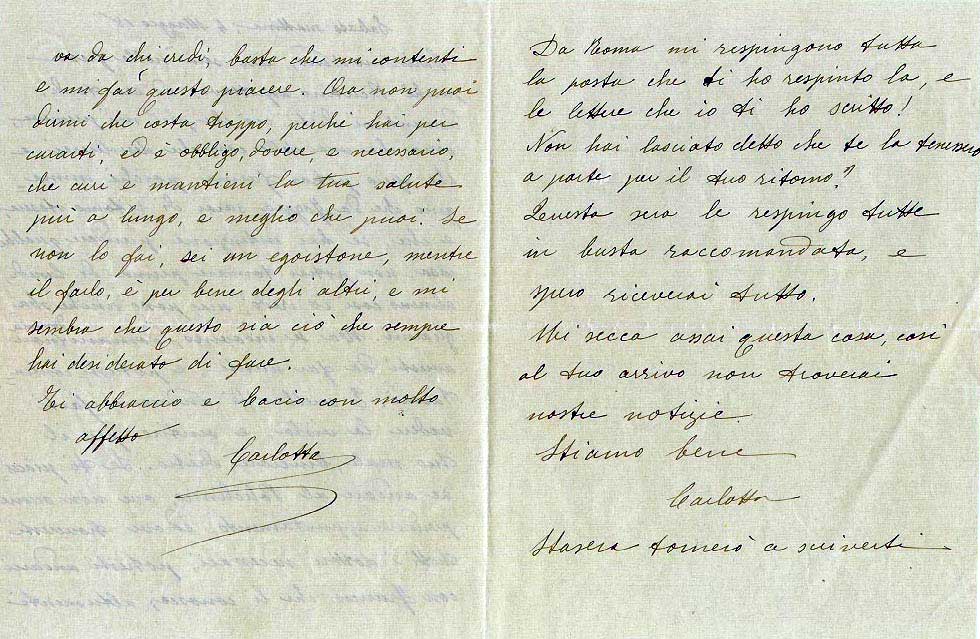 va da chi credi, basta che mi contenti
e mi fai questo piacere. Ora non puoi
dirmi che costa troppo, perché hai per
curarti, ed è obbligo, dovere, e necessario,
che curi e mantieni la tua salute
più a lungo, e meglio che puoi. Se
non lo fai, sei un egoistone, mentre
il farlo, è per bene degli altri, e mi
sembra che questo sia ciò che sempre
hai desiderato di fare.
Ti abbraccio e bacio con molto
affetto
Carlotta
Da Roma mi respingono tutta
la posta che ti ho respinto la, e
le lettere che io ti ho scritto!
Non hai lasciato detto che te la tenessero
a parte per il tuo ritorno?
Questa sera le respingo tutte
in busta raccomandata, e
spero riceverai tutto.
Mi secca assai questa cosa, così
al tuo arrivo non troverai
nostre notizie.
Stiamo bene
Carlotta
Stasera tornerò a scriverti